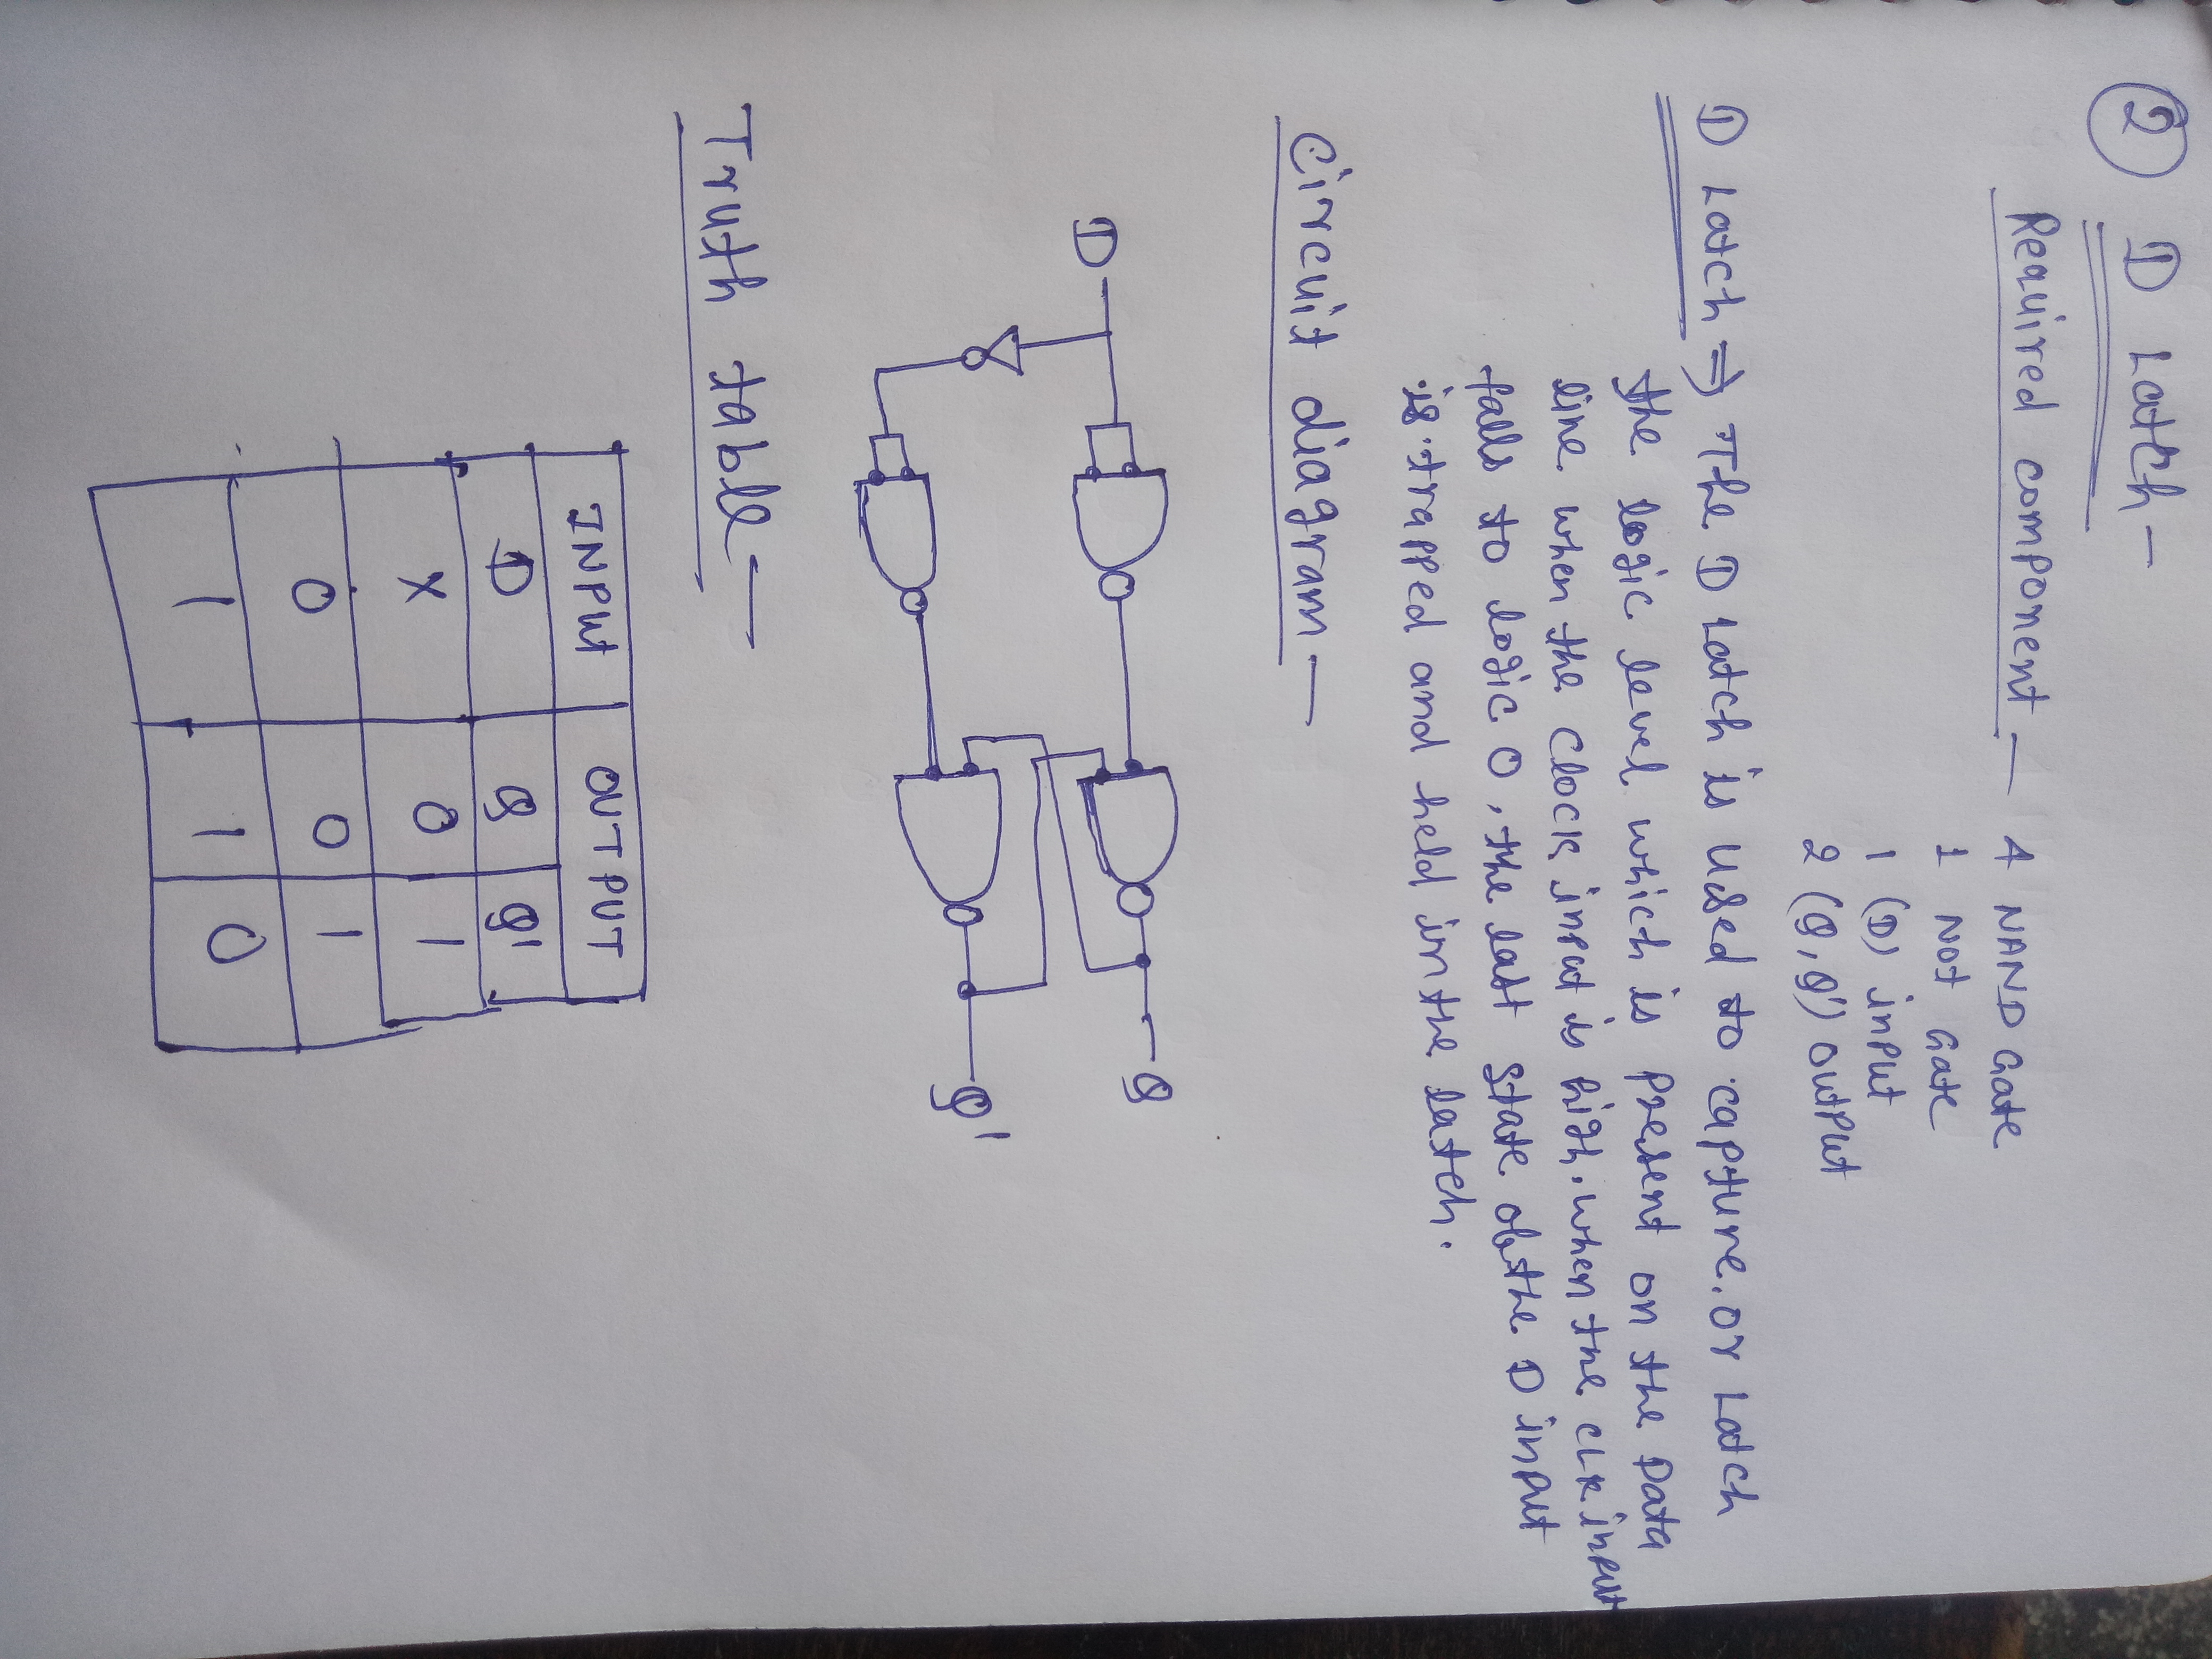 ② D Latch —
Required component — 4 NAND Gate
1 Not Gate
1 (D) input
2 (Q, Q') output
D Latch ⇒ The D Latch is used to capture. or Latch
the logic level which is present on the Data
line when the clock input is high. when the CLK input
falls to logic 0, the last state of the D input
is trapped and held in the latch.
Circuit diagram —
D
Q
Q'
Truth table —
INPUT OUTPUT
D Q Q'
X 0 1
0 0 1
1 1 0